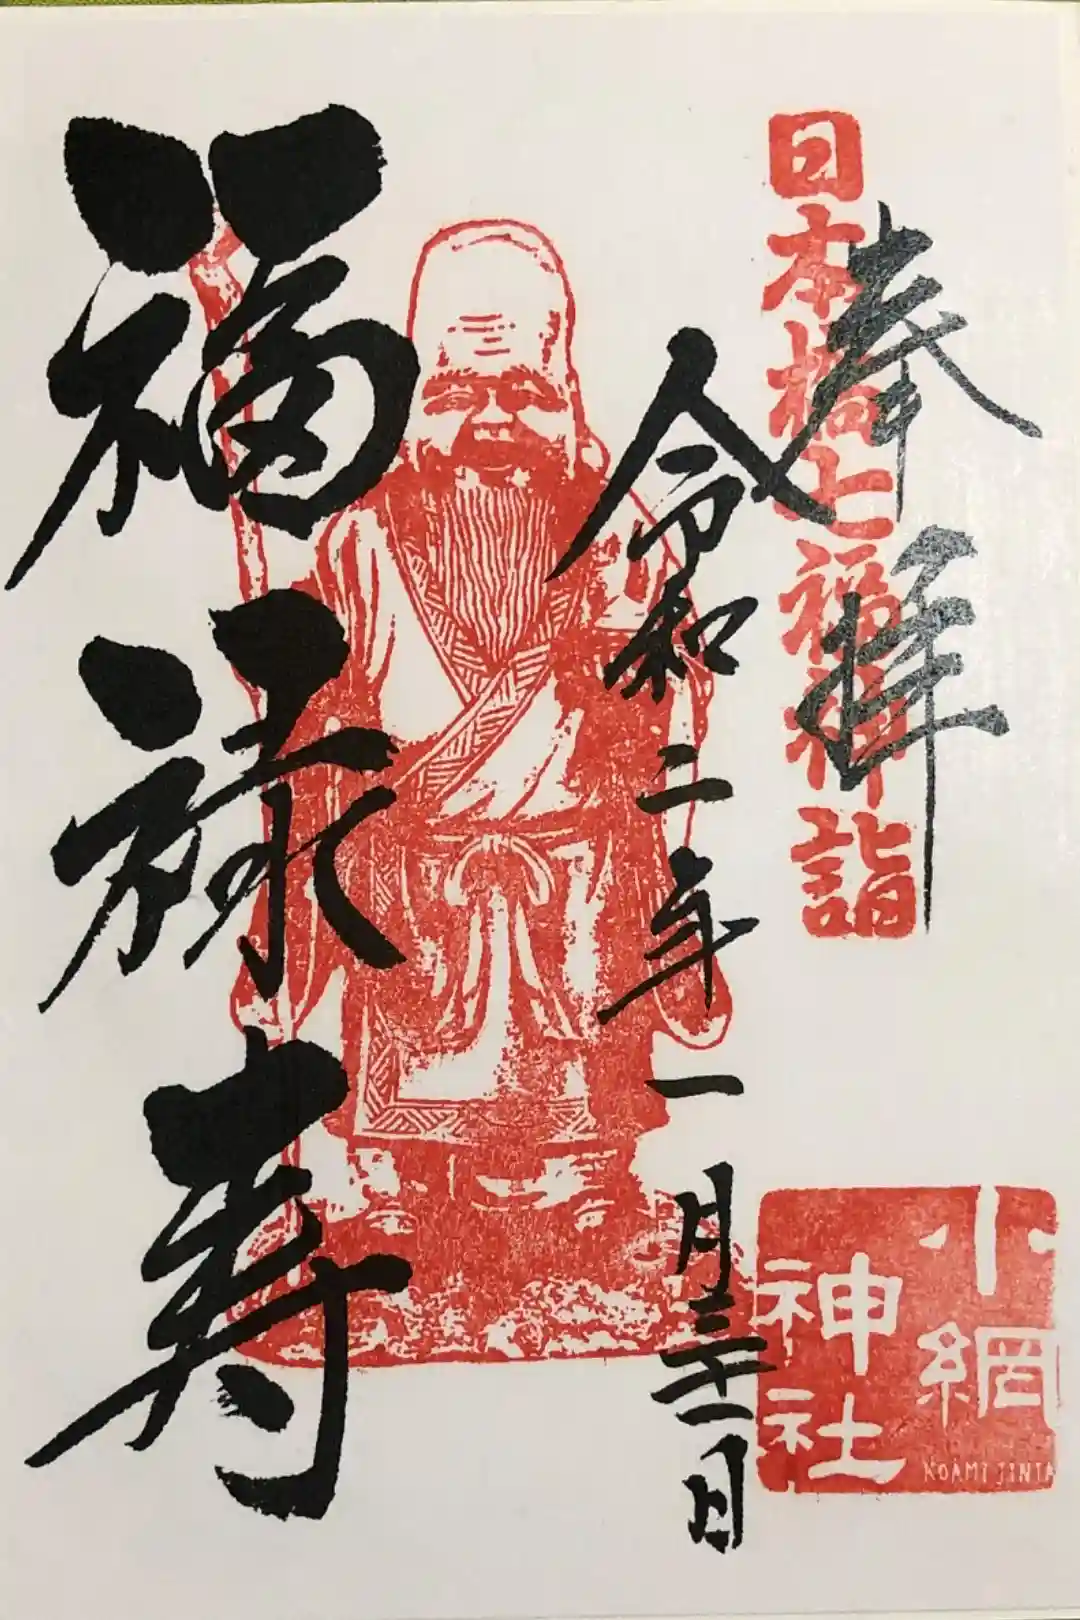 奉拝
日本橋七福神詣
令和二年一月三十一日
福禄寿
小網
神社
KOAMI JINJA